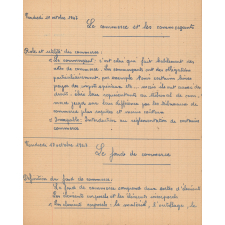 Vendredi 10 octobre 1947
Le commerce et les commerçants
Rôle et utilité du commerce :
a) Le commerçant : c'est celui que fait habituellement des
actes de commerce. Les commerçants ont des obligations
particulièrement, par exemple tenir certains livres
payer des impôts spéciaux etc... mais ils ont aussi des
droits. être leurs représentants au tribunal de com-
merce jugés sur leur différence par les tribunaux de
commerce plus rapides et moins coûteux
b) Interdits : Interdiction ou réglementation de certains
commerces
Vendredi 17 octobre 1947
Le fonds de commerce
Définition du fond de commerce :
Le fond de commerce comprend deux sortes d'éléments
Les éléments corporels et les éléments incorporels
a) Les éléments corporels : le matériel, l'outillage, les